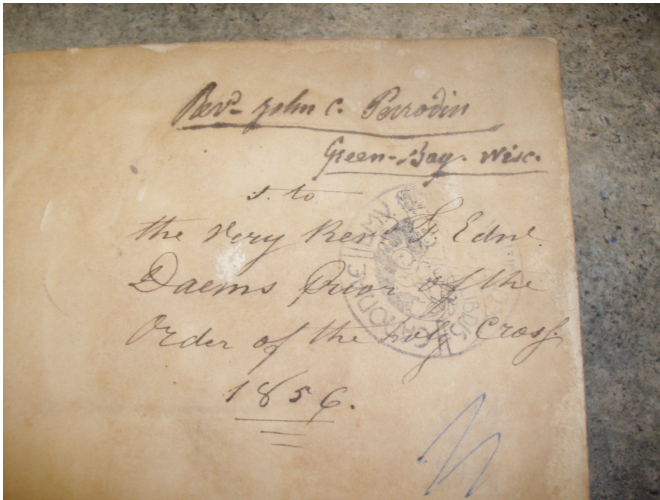 Revd. John C. Perrodin
Green-Bay. Wisc.
s. to
the Very Revd F. Edwd.
Daems Prior of the
Order of the holy Cross
1856.